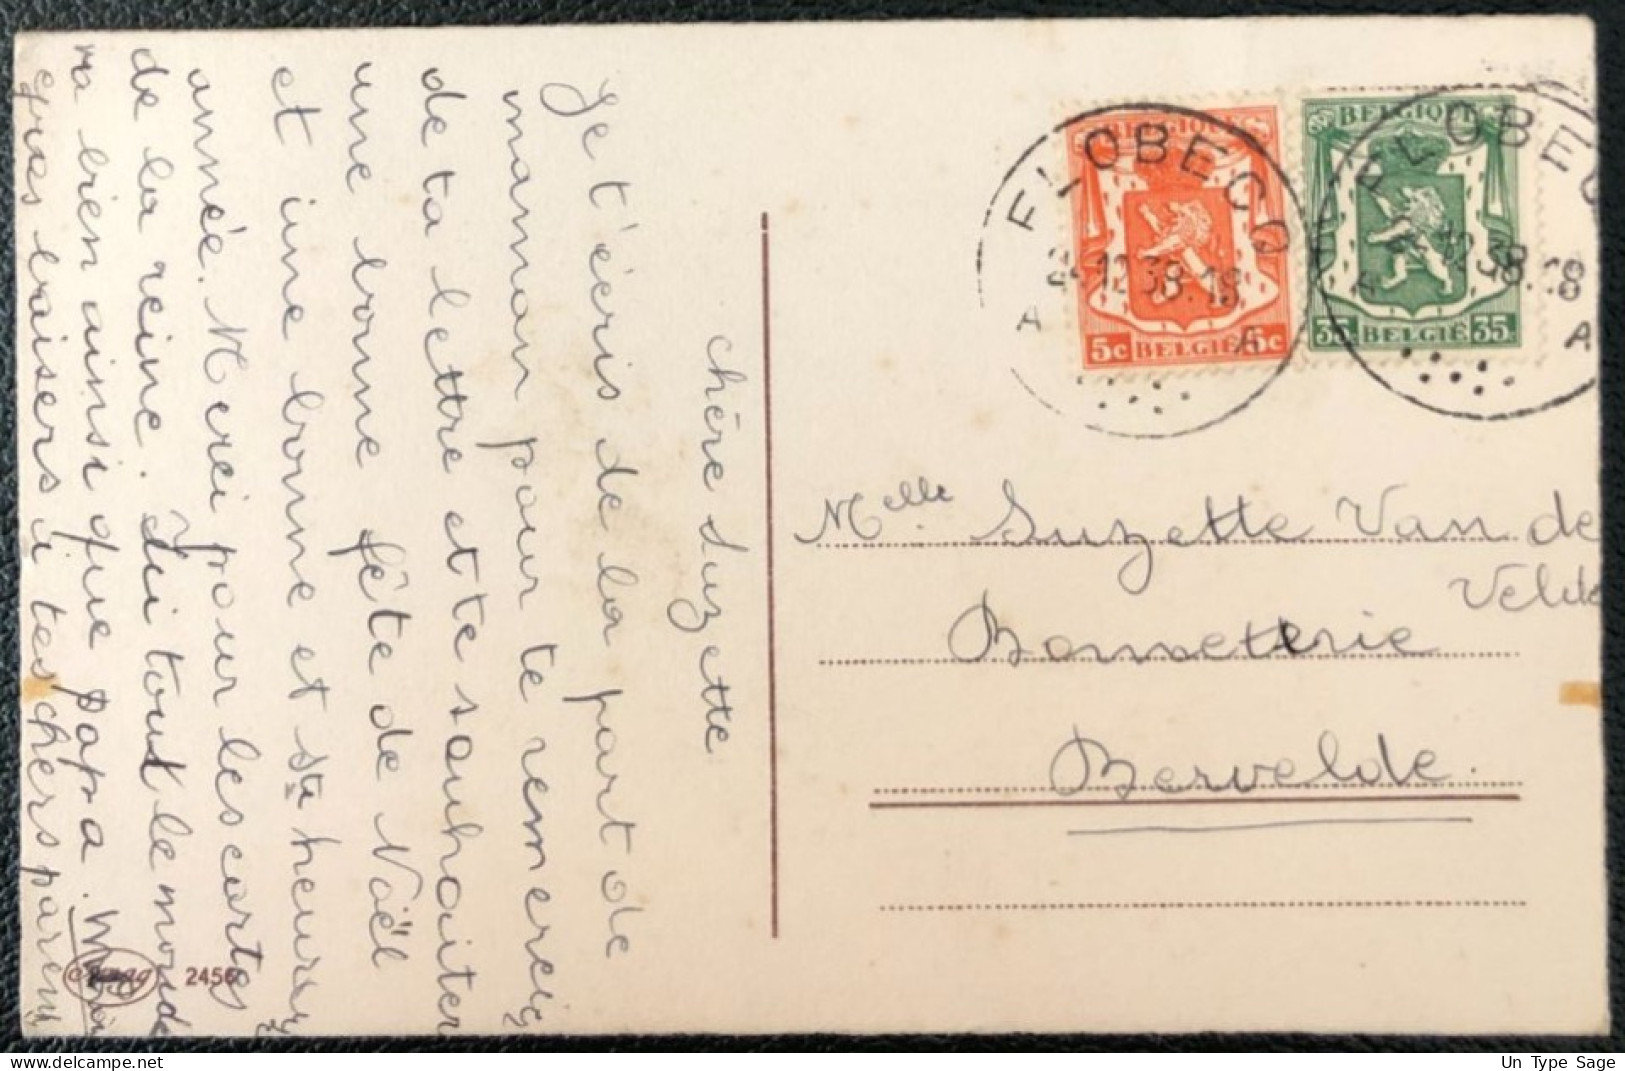 chère Suzette
Je t'écris de la part de
maman pour te remerciez
de ta lettre et te souhaiter
une bonne fête de Noël
et une bonne et sta heureuz
année. Merci pour les cartes
de la reine. tout le monde
va bien ainsi que papa.
baisers à tes chers parents
2456
BELGIQUE
5c BELGIË 5c
BELGIQUE
35c BELGIË 35c
FLOBECQ
24.12.38.18
A A
FLOBEC
12.38.18
A A
Melle Suzette Van de
Velde
Bonnetterie
Bervelde.
www.delcampe.net
Un Type Sage